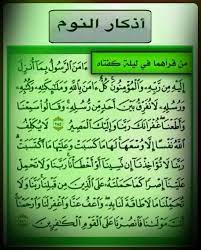 أذكار النوم
من قرأهما في ليلة كفتاه
ءَامَنَ ٱلرَّسُولُ بِمَآ أُنزِلَ
إِلَيْهِ مِن رَّبِّهِۦ وَٱلْمُؤْمِنُونَ كُلٌّ ءَامَنَ بِٱللَّهِ وَمَلَٰٓئِكَتِهِۦ وَكُتُبِهِۦ
وَرُسُلِهِۦ لَا نُفَرِّقُ بَيْنَ أَحَدٍ مِّن رُّسُلِهِۦ وَقَالُوا۟ سَمِعْنَا
وَأَطَعْنَا غُفْرَانَكَ رَبَّنَا وَإِلَيْكَ ٱلْمَصِيرُ لَا يُكَلِّفُ
ٱللَّهُ نَفْسًا إِلَّا وُسْعَهَا لَهَا مَا كَسَبَتْ وَعَلَيْهَا مَا ٱكْتَسَبَتْ
رَبَّنَا لَا تُؤَاخِذْنَآ إِن نَّسِينَآ أَوْ أَخْطَأْنَا رَبَّنَا وَلَا تَحْمِلْ
عَلَيْنَآ إِصْرًا كَمَا حَمَلْتَهُۥ عَلَى ٱلَّذِينَ مِن قَبْلِنَا رَبَّنَا وَلَا
تُحَمِّلْنَا مَا لَا طَاقَةَ لَنَا بِهِۦ وَٱعْفُ عَنَّا وَٱغْفِرْ لَنَا وَٱرْحَمْنَآ
أَنتَ مَوْلَىٰنَا فَٱنصُرْنَا عَلَى ٱلْقَوْمِ ٱلْكَٰفِرِينَ